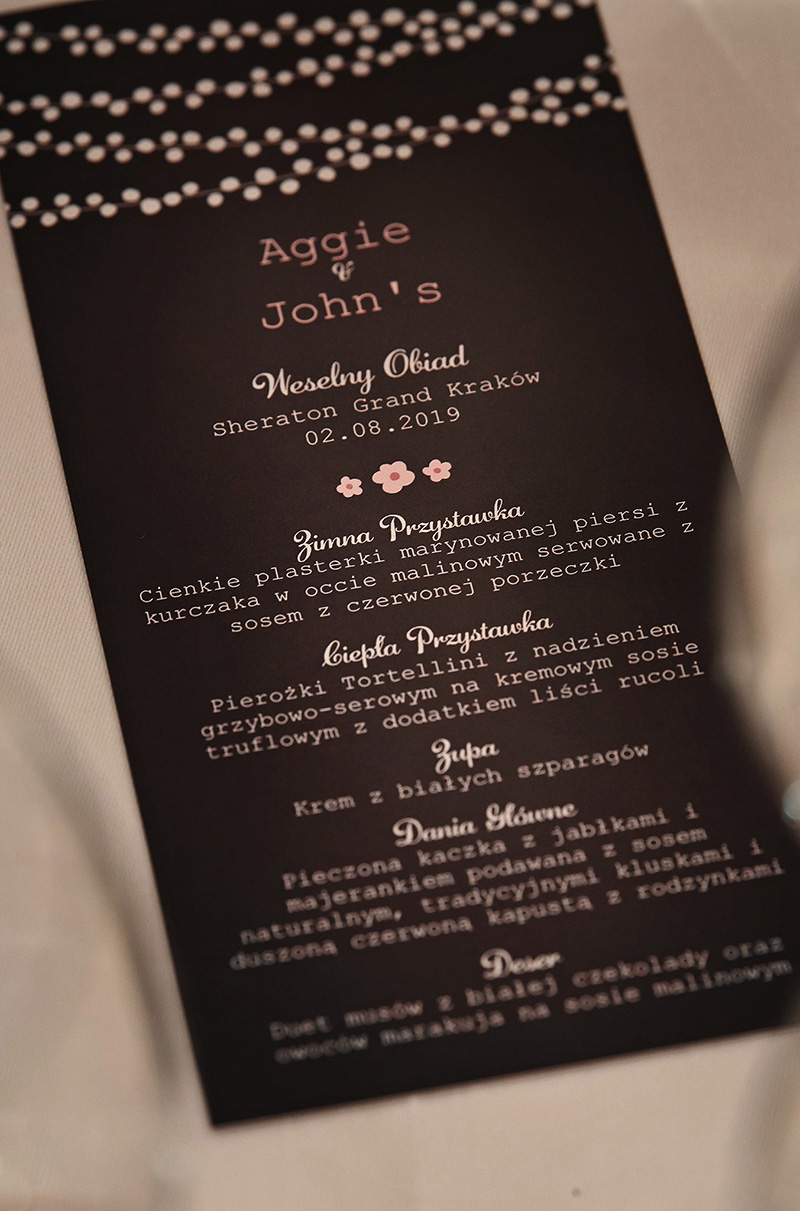 Aggie
&
John's
Weselny Obiad
Sheraton Grand Kraków
02.08.2019
Zimna Przystawka
Cienkie plasterki marynowanej piersi z
kurczaka w occie malinowym serwowane z
sosem z czerwonej porzeczki
Ciepła Przystawka
Pierożki Tortellini z nadzieniem
grzybowo-serowym na kremowym sosie
truflowym z dodatkiem liści rucoli
Zupa
Krem z białych szparagów
Dania Główne
Pieczona kaczka z jabłkami i
majerankiem podawana z sosem
naturalnym, tradycyjnymi kluskami i
duszoną czerwoną kapustą z rodzynkami
Deser
Duet musów z białej czekolady oraz
owoców marakuja na sosie malinowym